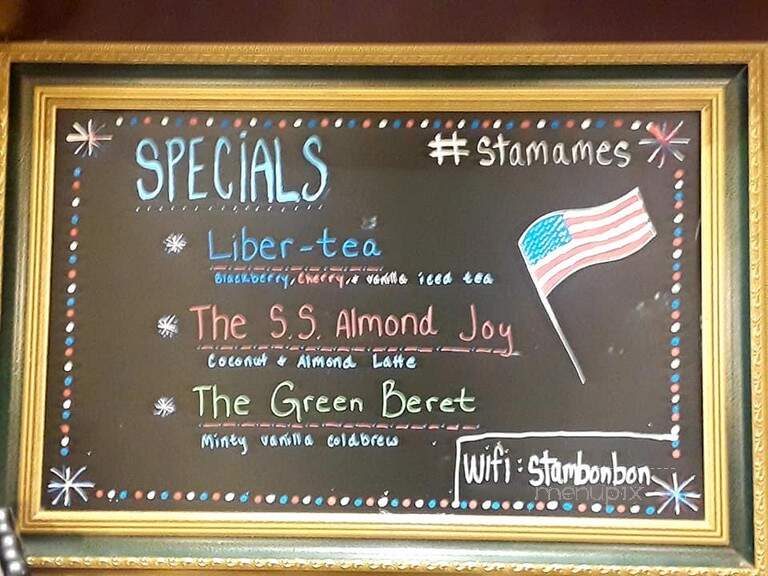 SPECIALS
#stamames
Liber-tea
Blackberry, Cherry, & vanilla iced tea
The S.S. Almond Joy
Coconut & Almond Latte
The Green Beret
Minty vanilla coldbrew
Wifi: stambonbon
menupix